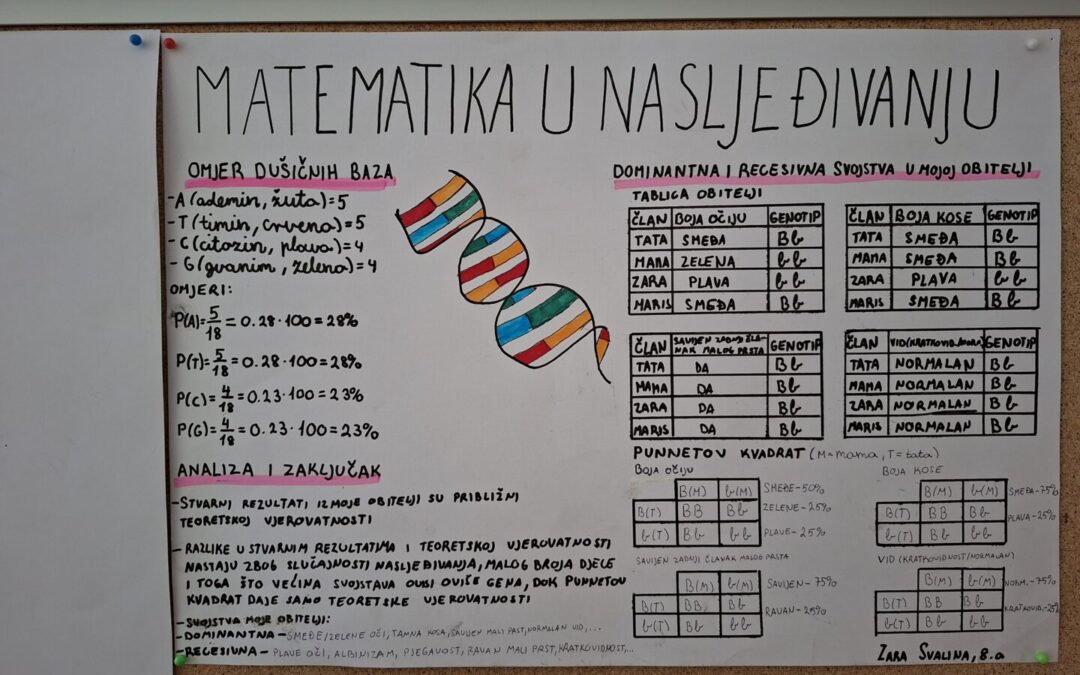 MATEMATIKA U NASLJEĐIVANJU
OMJER DUŠIČNIH BAZA
-A (ademin, žuta)=5
-T (timin, crvena)=5
-C (citozin, plava)=4
-G (gvanim, zelena)=4
OMJERI:
P(A)=5/18=0.28·100=28%
P(T)=5/18=0.28·100=28%
P(C)=4/18=0.23·100=23%
P(G)=4/18=0.23·100=23%
ANALIZA I ZAKLJUČAK
-STVARNI REZULTATI IZ MOJE OBITELJI SU PRIBLIŽNI
TEORETSKOJ VJEROVATNOSTI
-RAZLIKE U STVARNIM REZULTATIMA I TEORETSKOJ VJEROVATNOSTI
NASTAJU ZBOG SLUČAJNOSTI NASLJEĐIVANJA, MALOG BROJA DJECE
I TOGA ŠTO VEĆINA SVOJSTAVA OVISI O VIŠE GENA, DOK PUNNETOV
KVADRAT DAJE SAMO TEORETSKE VJEROVATNOSTI
-SVOJSTVA MOJE OBITELJI:
-DOMINANTNA-SMEĐE/ZELENE OČI, TAMNA KOSA, SAVIJEN MALI PRST, NORMALAN VID,...
-RECESIVNA-PLAVE OČI, ALBINIZAM, PJEGAVOST, RAVAN MALI PRST, KRATKOVIDNOST,...
DOMINANTNA I RECESIVNA SVOJSTVA U MOJOJ OBITELJI
TABLICA OBITELJI
ČLAN BOJA OČIJU GENOTIP
TATA SMEĐA Bb
MAMA ZELENA bb
ZARA PLAVA bb
MARIS SMEĐA Bb
ČLAN BOJA KOSE GENOTIP
TATA SMEĐA Bb
MAMA SMEĐA Bb
ZARA PLAVA bb
MARIS SMEĐA Bb
ČLAN SAVIJEN ZADNJI ČLA-
NAK MALOG PRSTA GENOTIP
TATA DA Bb
MAMA DA Bb
ZARA DA Bb
MARIS DA Bb
ČLAN GENOTIP
TATA NORMALAN Bb
MAMA NORMALAN Bb
ZARA NORMALAN Bb
MARIS NORMALAN Bb
PUNNETOV KVADRAT (M=mama, T=tata)
BOJA OČIJU
B(M) b(M)
B(T) BB Bb
b(T) Bb bb
SMEĐE-50%
ZELENE-25%
PLAVE-25%
BOJA KOSE
B(M) b(M)
B(T) BB Bb
b(T) Bb bb
SMEĐA-75%
PLAVA-25%
SAVIJEN ZADNJI ČLANAK MALOG PRSTA
B(M) b(M)
B(T) BB Bb
b(T) Bb bb
SAVIJEN-75%
RAVAN-25%
VID (KRATKOVIDNOST/NORMALAN)
B(M) b(M)
B(T) BB Bb
b(T) Bb bb
NORM.-75%
KRATKOVID.-25%
ZARA SVALINA, 8.a